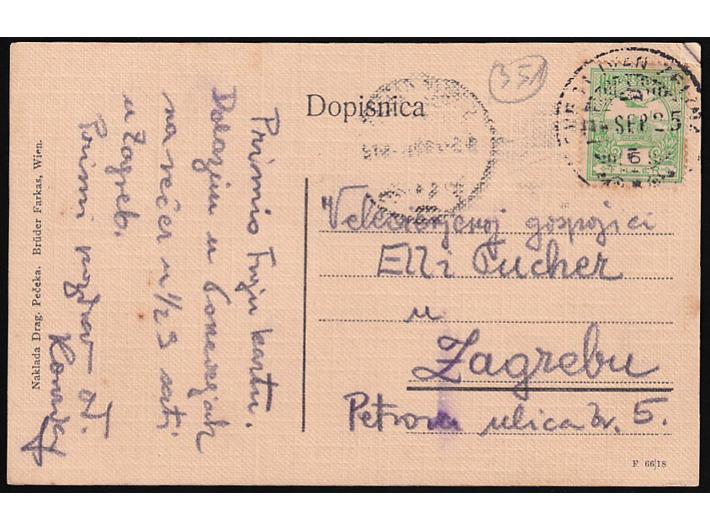 351
Dopisnica
SEP 25
Primio Tvoju kartu.
Dolazim u Ponedeljak
na večer u 1/2 9 sati
u Zagreb.
Primi pozdrav od
Velecijenjenoj gospojici
Elli Pucher
u
Zagrebu
Petrova ulica br. 5.
Naklada Drag. Pečeka. Brüder Farkas, Wien.
F 66/18